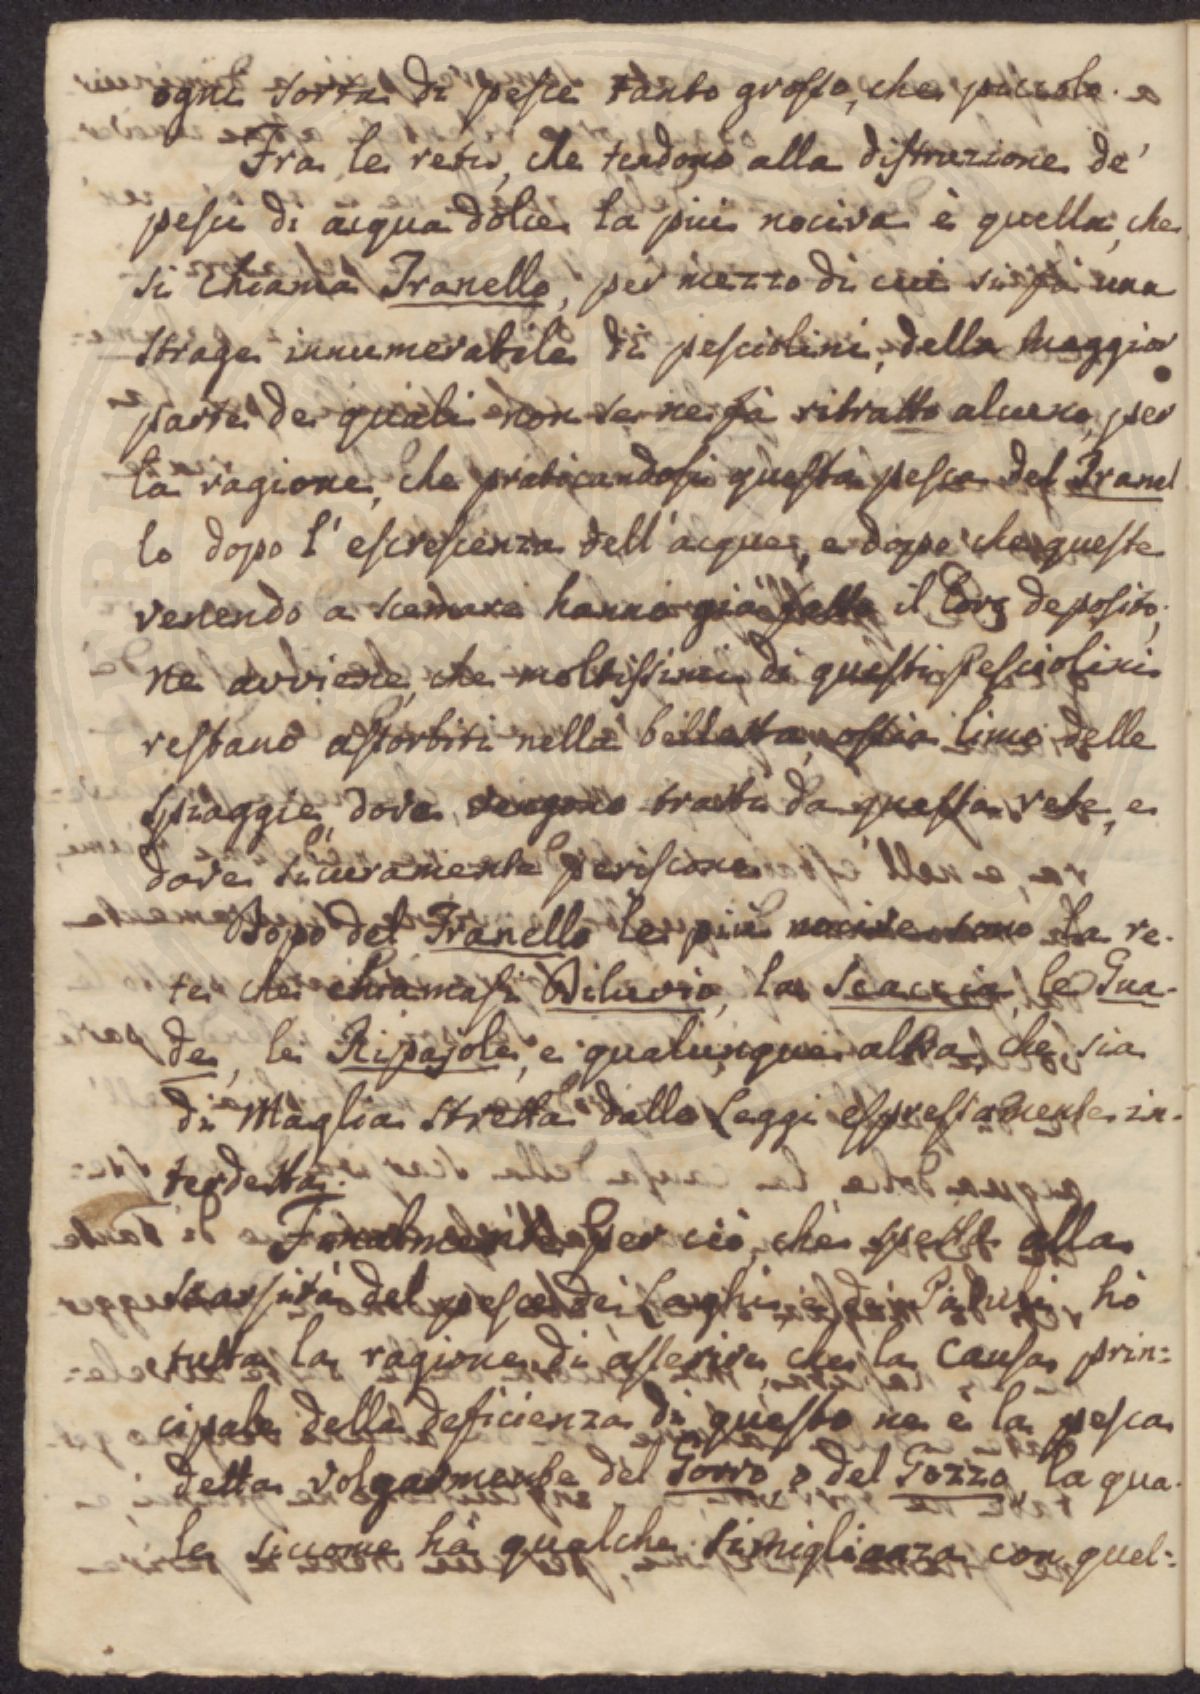 ogni sorta di pesce tanto grosso, che piccolo.
Fra le reti, che tendono alla distruzione de'
pesci di acqua dolce la più nociva è quella, che
si chiama Tranello, per mezzo di cui si fà una
strage innumerabile di pesciolini, della maggior
parte de quali non se ne fà ritratto alcuno, per
la ragione, che praticandosi questa pesca del Tranel
lo dopo l'escrescenza dell'acque, e dopo che queste
venendo a scemare hanno già fatto il loro deposito,
ne avviene, che moltissimi di questi Pesciolini
restano assorbiti nella belletta, ossia limo delle
spiaggie, dove vengono tratti da questa rete, e
dove sicuramente periscono.
Dopo del Tranello le più nocive sono la re-
te che chiamasi Diluvio, la Scaccia, le Gua-
de, le Ripajole, e qualunque altra, che sia
di Maglia stretta dalle Leggi espressamente in-
terdetta.
Finalmente Per ciò, che spetta alla
scarsità del pesce de Laghi, e dei Paduli, hò
tutta la ragione di asserire, che la causa prin-
cipale della deficienza di questo ne è la pesca
detta volgarmente del Gorro, o del Gozzo, la qua-
le siccome hà qualche simiglianza con quel-